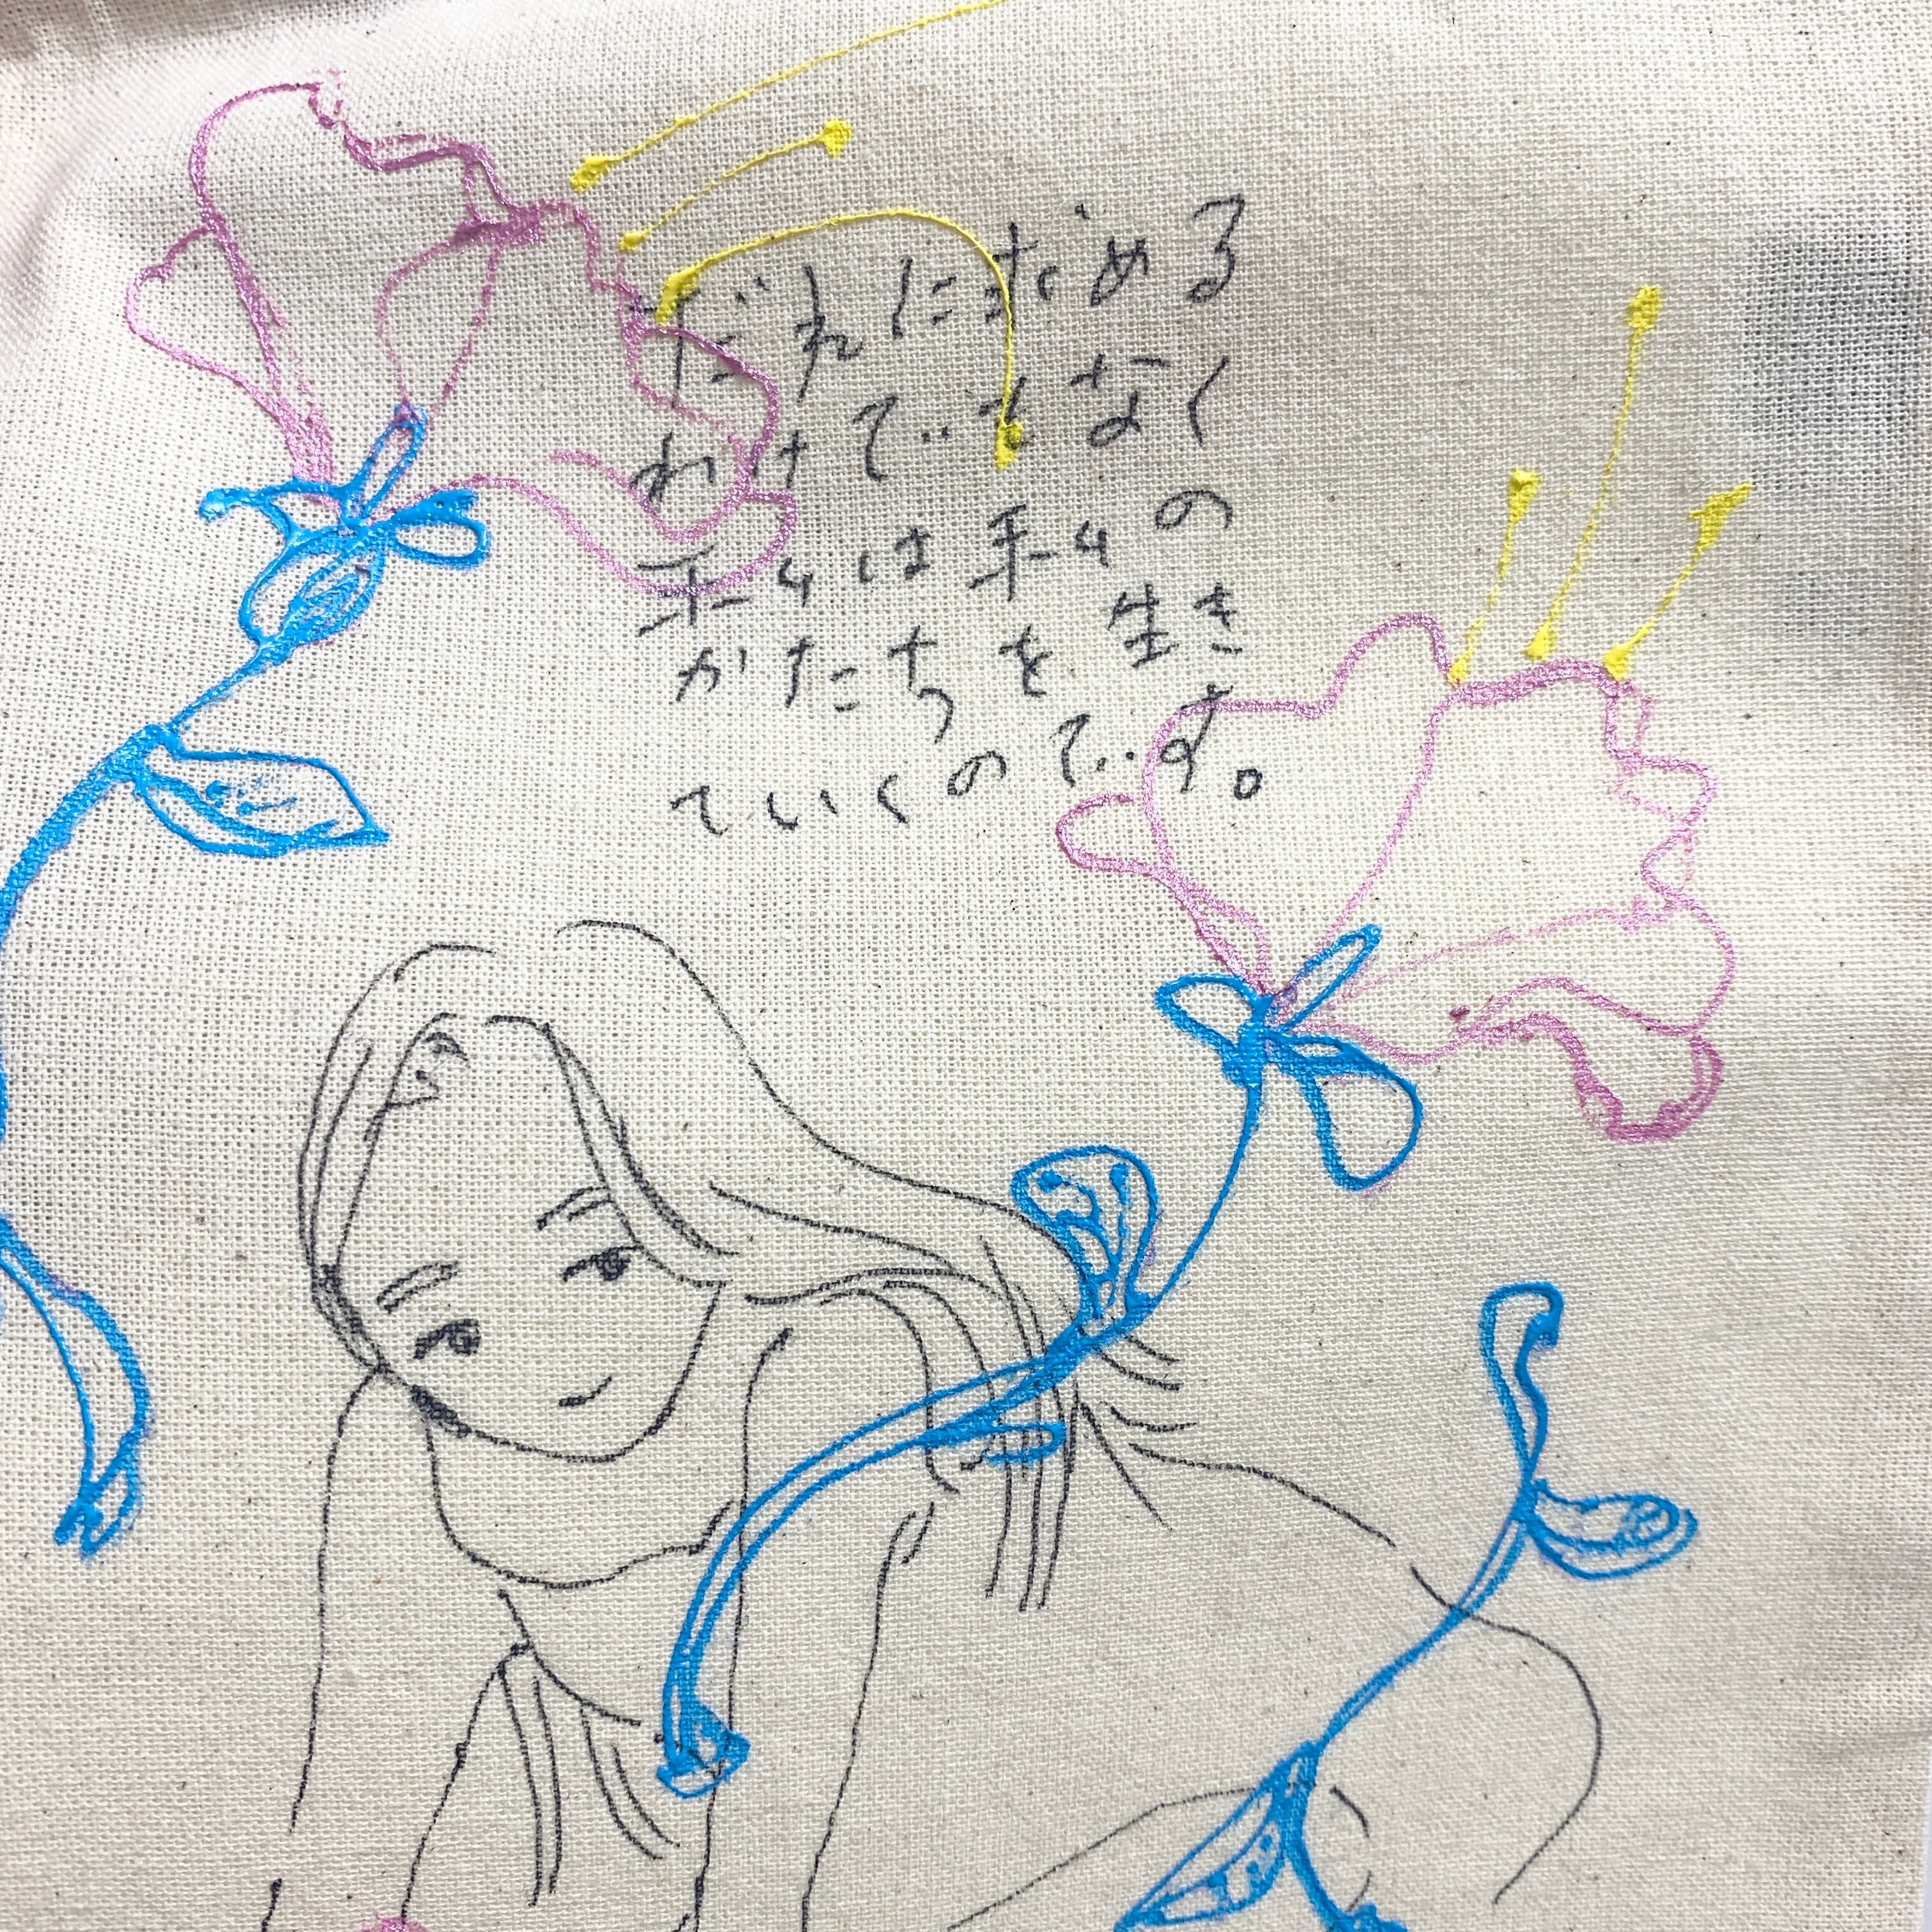 だれにすがめる
わけでもなく
私は私の
かたちを生き
ていくのです。